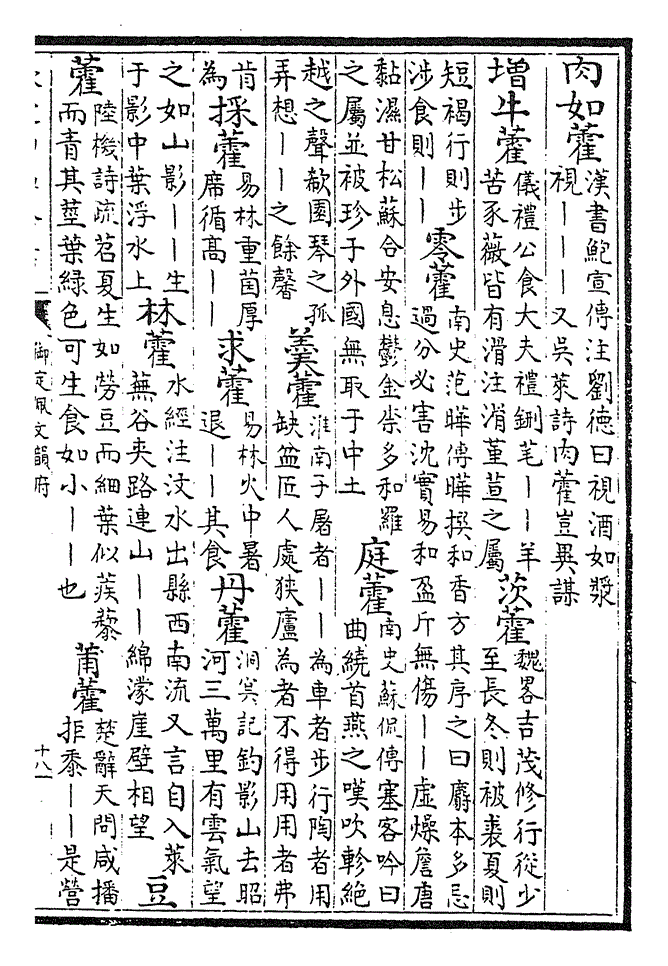 肉如藿 漢書鮑宣傳注劉德曰視酒如漿
視｜｜｜又吳萊詩肉藿豈異謀
増牛藿 儀禮公食大夫禮鉶芼｜｜羊
苦豕薇皆有滑注滑堇荁之屬
茨藿 魏畧吉茂修行從少
至長冬則被裘夏則
短褐行則步
涉食則｜｜
零藿 南史范曄傳曄撰和香方其序之曰麝本多忌
過分必害沈實易和盈斤無傷｜｜虛燥詹唐
黏濕甘松蘇合安息鬱金㮈多和羅
之屬並被珍于外國無取于中土
庭藿 南史蘇侃傳塞客吟曰
曲繞首燕之嘆吹軫絕
越之聲欷園琴之孤
弄想｜｜之餘馨
羮藿 淮南子屠者｜｜為車者步行陶者用
缺盆匠人處狹廬為者不得用用者弗
肯
為
採藿 易林重茵厚
席循高｜｜
求藿 易林火中暑
退｜｜其食
丹藿 洞冥記釣影山去昭
河三萬里有雲氣望
之如山影｜｜生
于影中葉浮水上
林藿 水經注汶水出縣西南流又言自入萊
蕪谷夾路連山｜｜綿濛崖壁相望
豆
藿 陸機詩疏苕夏生如勞豆而細葉似蒺藜
而青其莖葉緑色可生食如小｜｜也
莆藿 楚辭天問咸播
拒黍｜｜是營
御定佩文韻府
十八